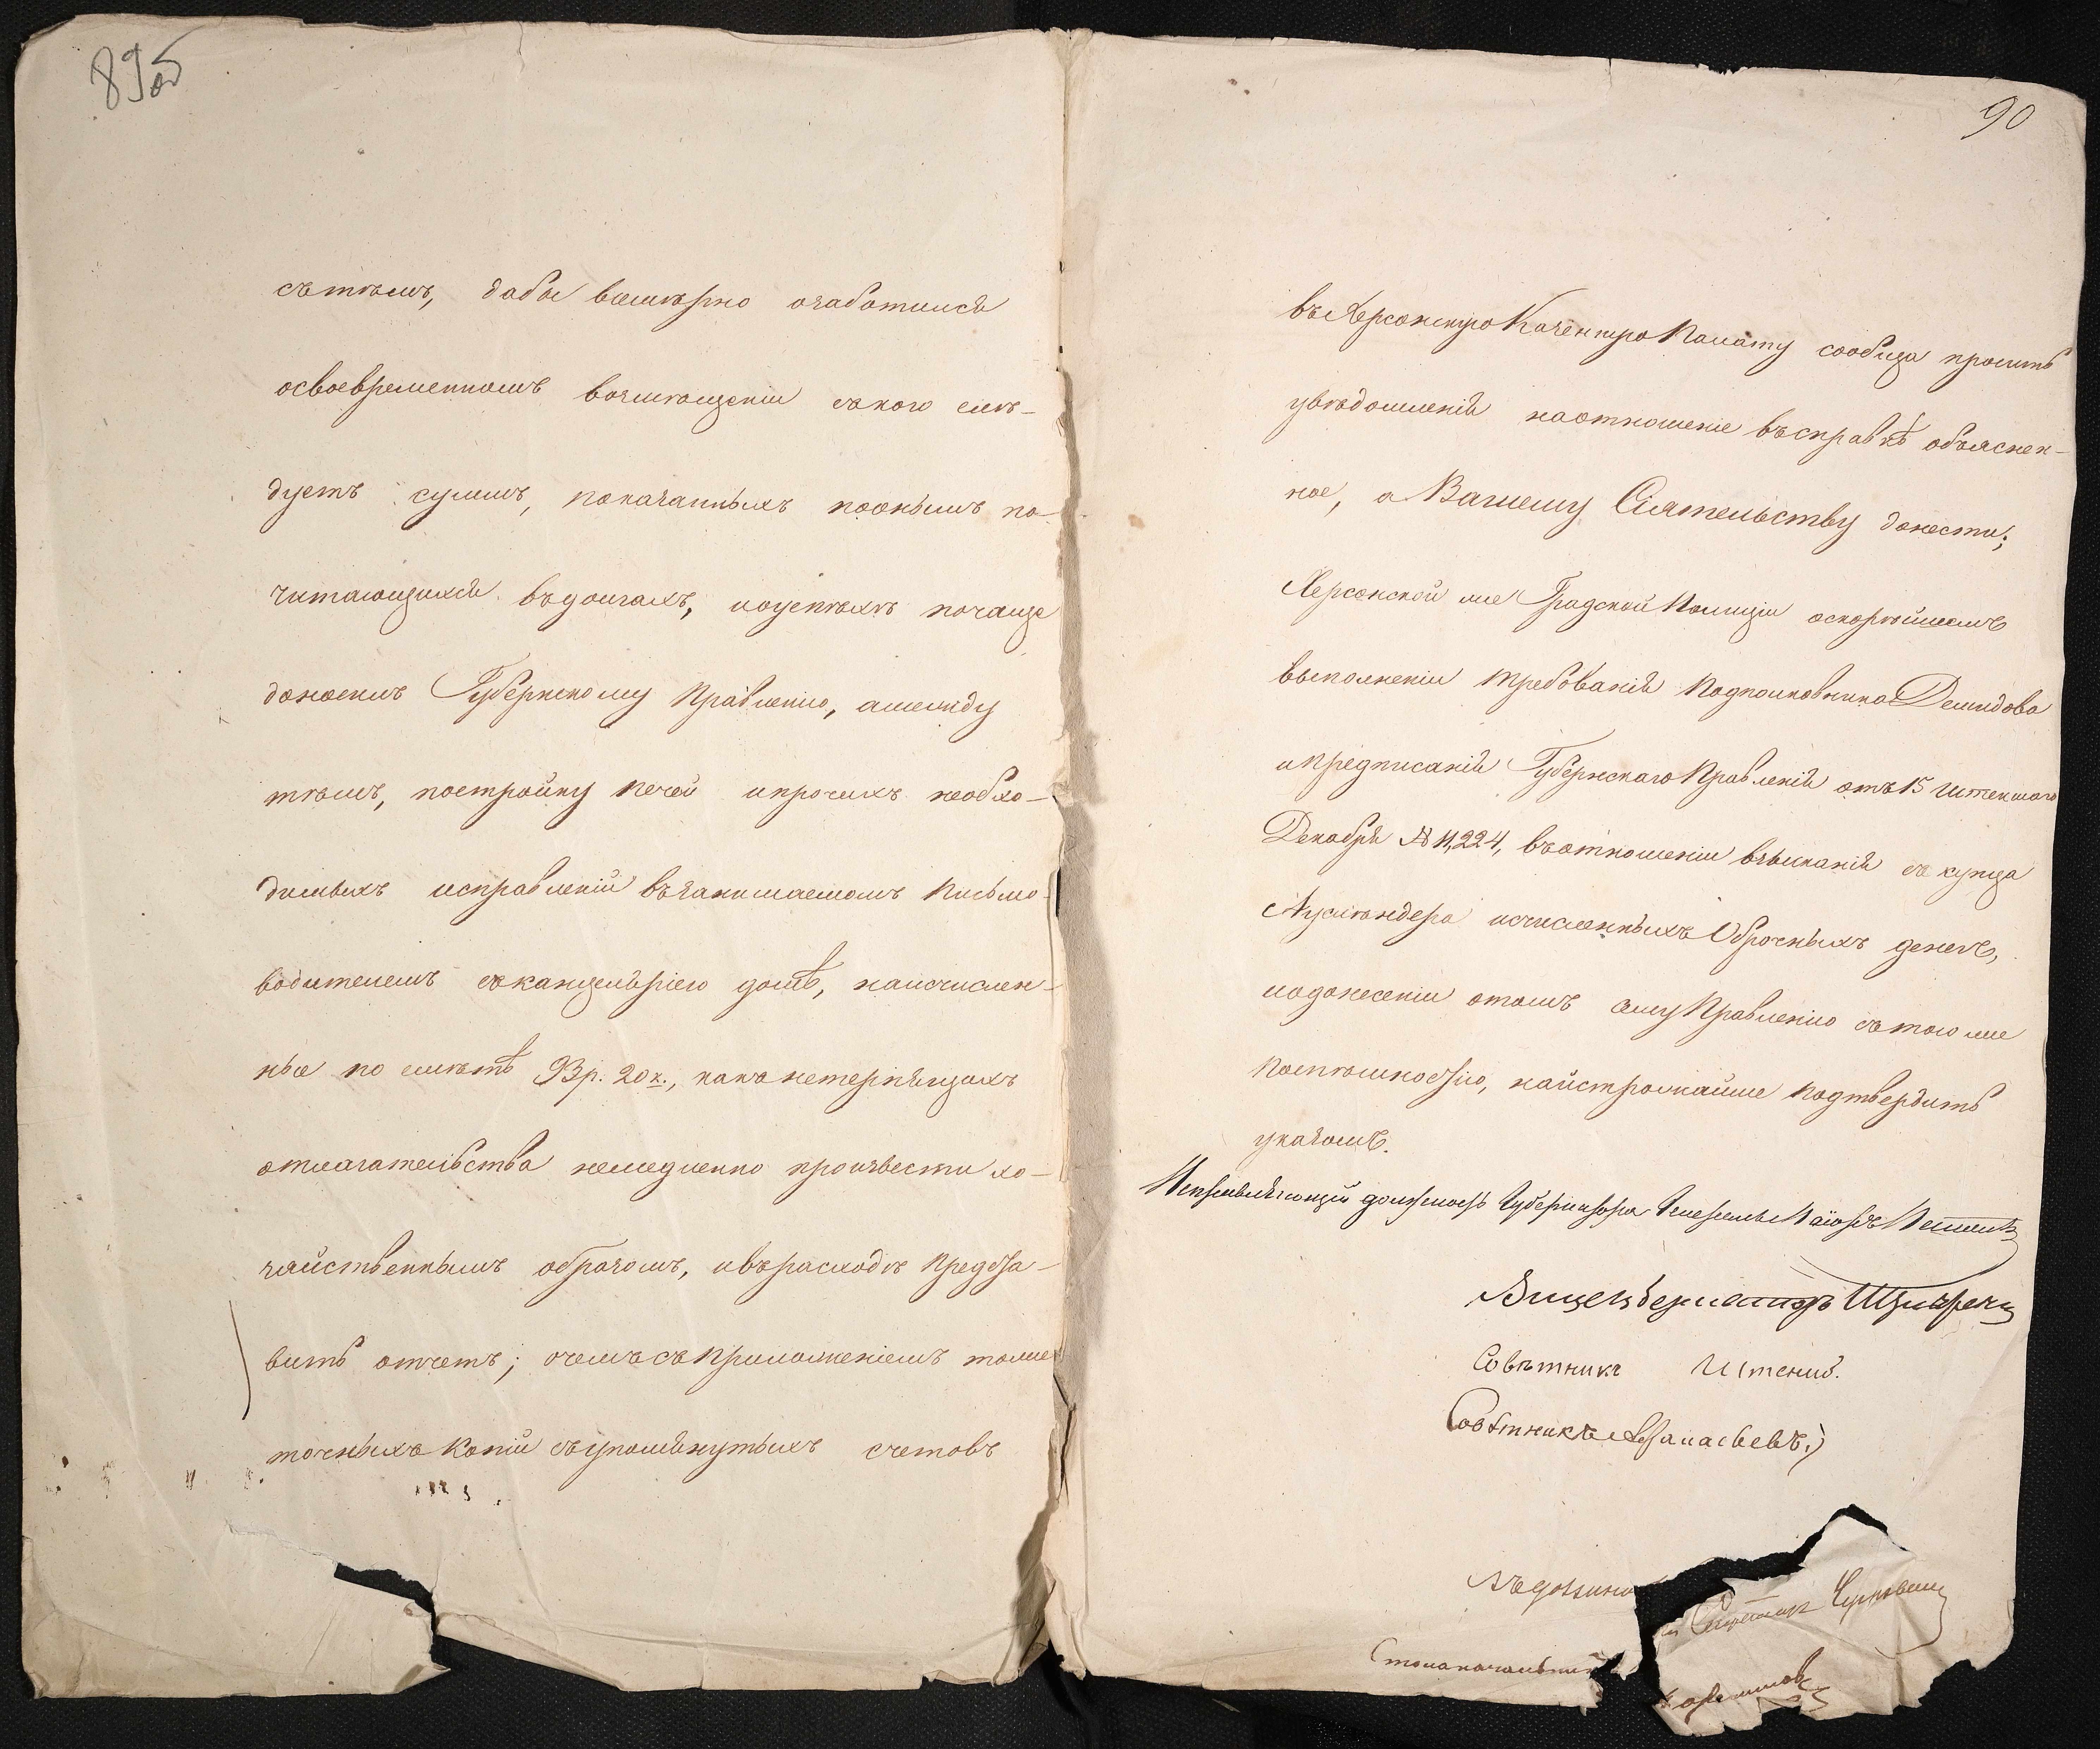 89об
съ тѣмъ, дабы всемѣрно озаботился
о своевременномъ возмѣщеніи съ кого слѣ-
дуетъ суммъ, показанныхъ по онымъ по
читающихся въ долгахъ, и о успѣхѣ почаще
доносилъ Губернскому Правленію, а между
тѣмъ, постройку печей и прочихъ необхо-
димыхъ исправленій въ занимаемомъ Письмо-
водителемъ съ канцеляріею домѣ, на исчислен-
ныя по смѣтѣ 93 р. 20 к., какъ не терпящихъ
отлагательства немедленно произвести хо-
зяйственнымъ образомъ, и въ расходѣ предста-
вить отчетъ; о чемъ съ приложеніемъ также
точныхъ копій съ упомянутыхъ счетовъ
90
въ Херсонскую Казенную Палату сообща просить
увѣдомленія на отношеніе въ справкѣ объяснен-
ное, а Вашему Сіятельству донести;
Херсонской же Градской Полиціи о скорѣйшемъ
выполненіи требованія Подполковника Демидова
и предписанія Губернскаго Правленія отъ 15 истекшаго
Декабря № 11,224, въ отношеніи взысканія съ купца
исчисленныхъ Оброчныхъ денегъ,
и о донесеніи о томъ сему Правленію съ тою же
поспѣшностію, найстрожайше подтвердить
указомъ.
Исправляющій должность Губернатора Генералъ Маіоръ
Вицегубернаторъ
Совѣтникъ
Совѣтникъ Афанасьевъ
Секретарь
Столоначальникъ